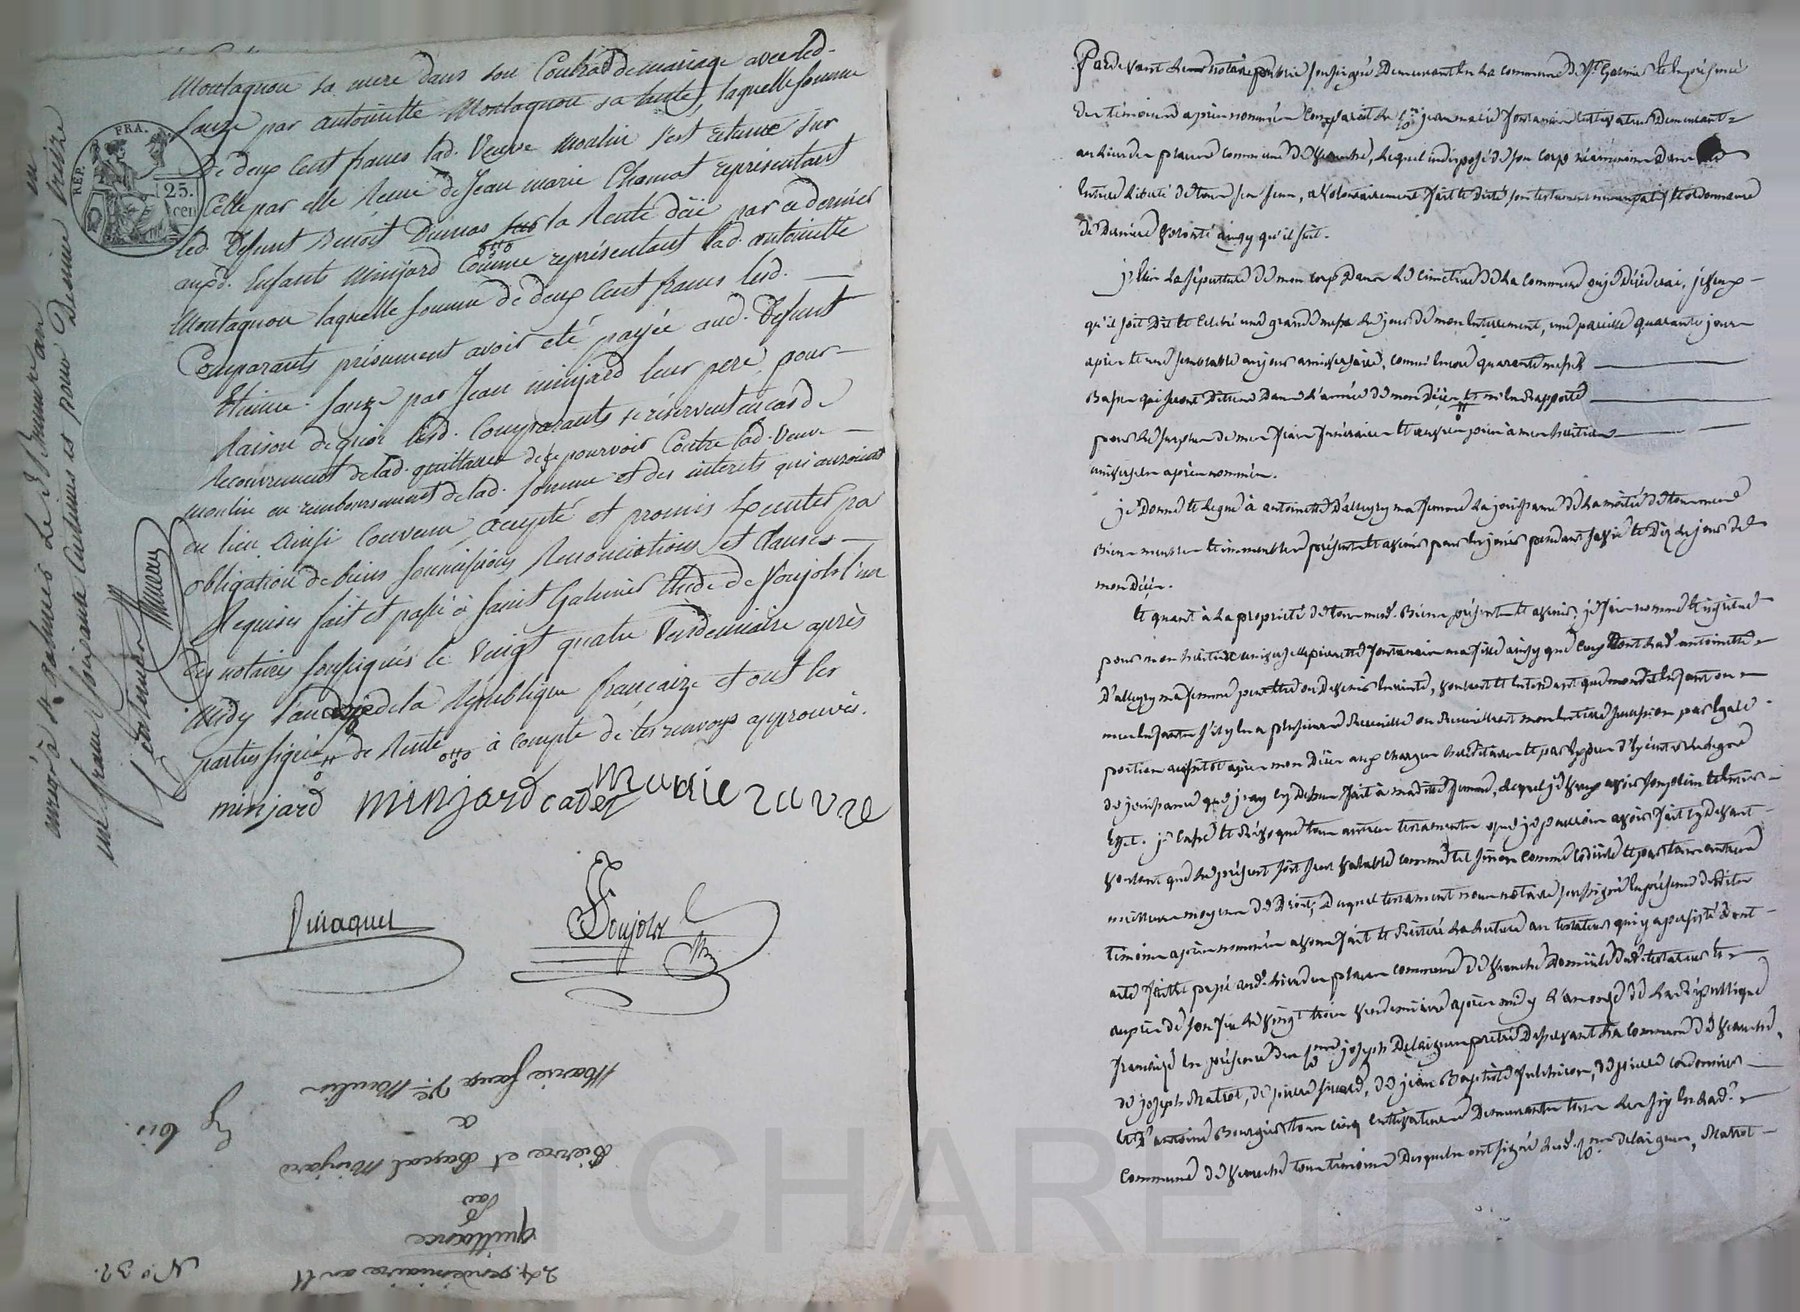 Montagnon sa mere dans son Contrat de mariage avec led.
Sauze par antoinette Montagnon sa tante, laquelle somme
de deux cent francs lad. Veuve Moulin s'est retenue sur
Celle par elle Reçue de Jean marie Chamat représentant
led. défunt Benoit Dumas sur la Rente düe par ce dernier
auxd. Enfants minjard Comme représentant lad. antoinette
Montagnon laquelle somme de deux Cent francs lesd.
Comparants présument avoir été payée aud. défunt
Etienne Sauze par Jean minjard leur pere, pour
Raison de quoi lesd. Comparants se réservent en cas de
recouvrement de lad. quittance de se pourvoir Contre lad. Veuve
moulin en remboursement de lad. somme et des interets qui auroient
eu lieu Ainsi Convenu, accepté et promis Executer par
obligation de biens soumissions Renonciations et Clauses
Requises fait et passé à Saint Galmier Etude de Poujols l'un
des notaires soussignés le vingt quatre Vendémiaire après
midy l'an onze de la République francaize et ont les
parties signé de Rente à compte de les renvoys approuvés.
minjard minjard cadet marie sauze
Poujols
enrégé à st galmier le
un franc soixante Centimes et pour Decime seize
REP. FRA.
25.
cen
Marie Sauze Ve. Moulin
a
Pierre et Pascal Minjard
par
quittance
24. vendemiaire an 11
No 32.
Pardevant le notaire public soussigné Demeurant en la commune de St. Galmier et en présence
des témoins après nommés Comparait le Cen. jean marie fontanier cultivateur Demeurant
au lieu des places commune de Veauche, lequel indisposé de son corps néanmoins dans
Entière liberté de tous ses sens, a volontairement fait et dicté son testament nuncupatif et ordonnance
de Derniere volonté ainsy qu'il suit.
j'Elis la sépulture de mon corps dans le cimetiere de la commune ou je décéderai, je veux
qu'il soit dit et célébré une grande messe le jour de mon enterrement, une pareille quarante jours
après et une semblable au jour anniversaire, comme encore quarante messes
Basses qui seront dittes dans l'année de mon Décès et m'en rapporte
pour le surplus de mes frais funéraires et œuvres pies à mes héritiers
universels après nommés.
je Donne et legue à antoinette D'allegry ma femme la jouissance de la moitié de tous mes
Biens meubles et immeubles présents et avenir pour en jouir pendant sa vie et dez le jour de
mon Décès.
et quant à la propriété de tous mesd. Biens présents et avenir, je fais nomme et institue
pour mon héritiere universelle pierrette fontanier ma fille ainsy que l'enfant dont lad. antoinette
D'allegry ma femme peut être ou devenir enceinte, voulant et entendant que mondit Enfant ou
mes Enfants s'il y en a plusieurs recueille ou recueillent mon entiere succession par égale
portion aussitôt après mon Décès aux charges héréditaires et par exprès d'exécuter le legs
de jouissance que j'ay cy Dessus fait à madite femme, lequel je veux avoir son plein et entier
Effet. je Casse et révoque tous autres testaments que je pourrois avoir fait cy Devant
voulant que le présent soit seul valable comme tel sinon comme codicile et par tous autres
meilleurs moyens de Droit, Duquel testament nous notaire soussigné en présence desdits
témoins après nommés avons fait et réitéré la lecture au testateur qui y a persisté Dont
acte fait et passé aud. lieu des places commune de Veauche Domicile dud. testateur et
auprès de son feu le vingt trois vendemiaire après midy l'an onze de la République
française en présence des Cens. joseph Delaigue prêtre Desservant la commune de Veauche,
de joseph Matrot, de pierre, de jean Baptiste, de pierre cordonnier
et d'antoine Bourgier tous cinq cultivateurs Demeurants tous les six en lad.
Commune de Veauche tous témoins Desquels ont signé led. Cen. delaigue, Matrot